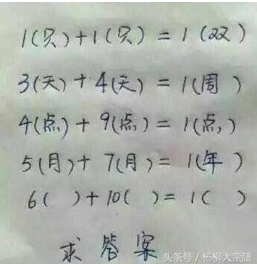 1(只)+1(只)=1(双)
3(天)+4(天)=1(周)
4(点)+9(点)=1(点)
5(月)+7(月)=1(年)
6( )+10( )=1( )
求答案
头条号/杨柳大